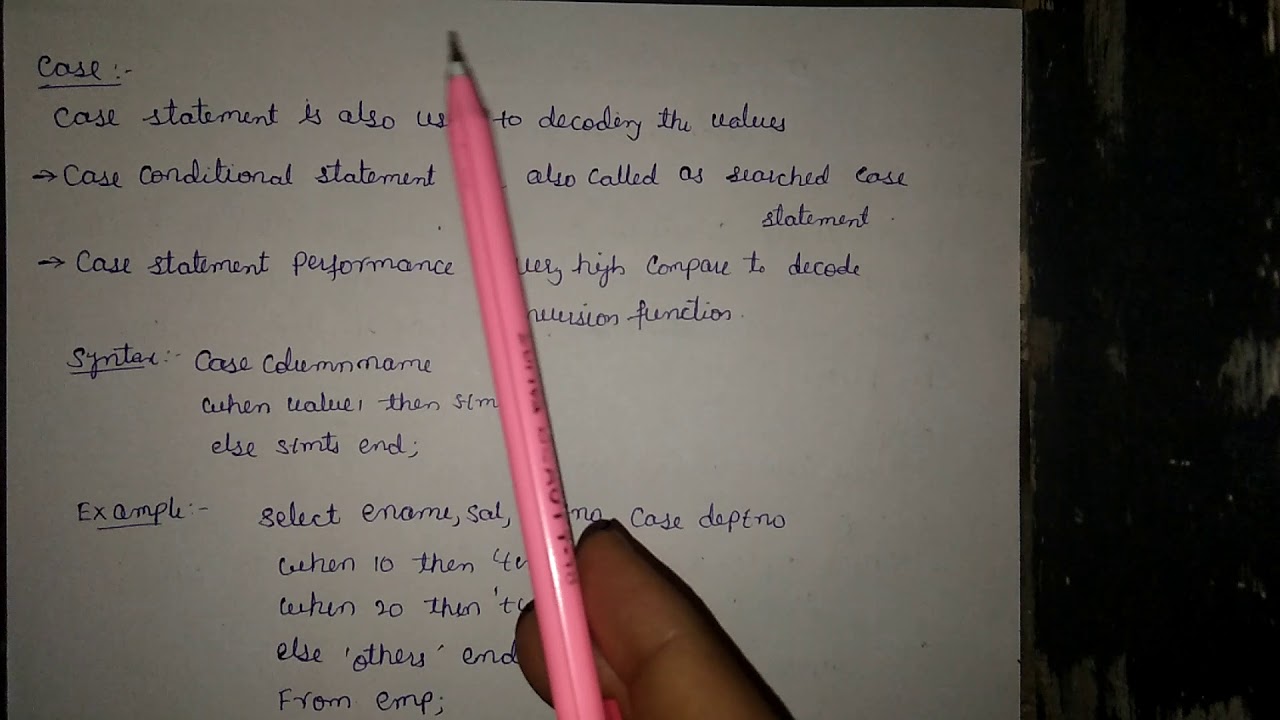 Case :-
Case statement is also us to decoding the values
→ Case conditional statement also called as searched case
statement .
→ Case statement performance very high compare to decode
function.
Syntax :- Case Columnname
when value1 then stm
else stmts end;
Example :- Select ename, sal, no, Case deptno
when 10 then
when 20 then
else 'others' end
From emp;